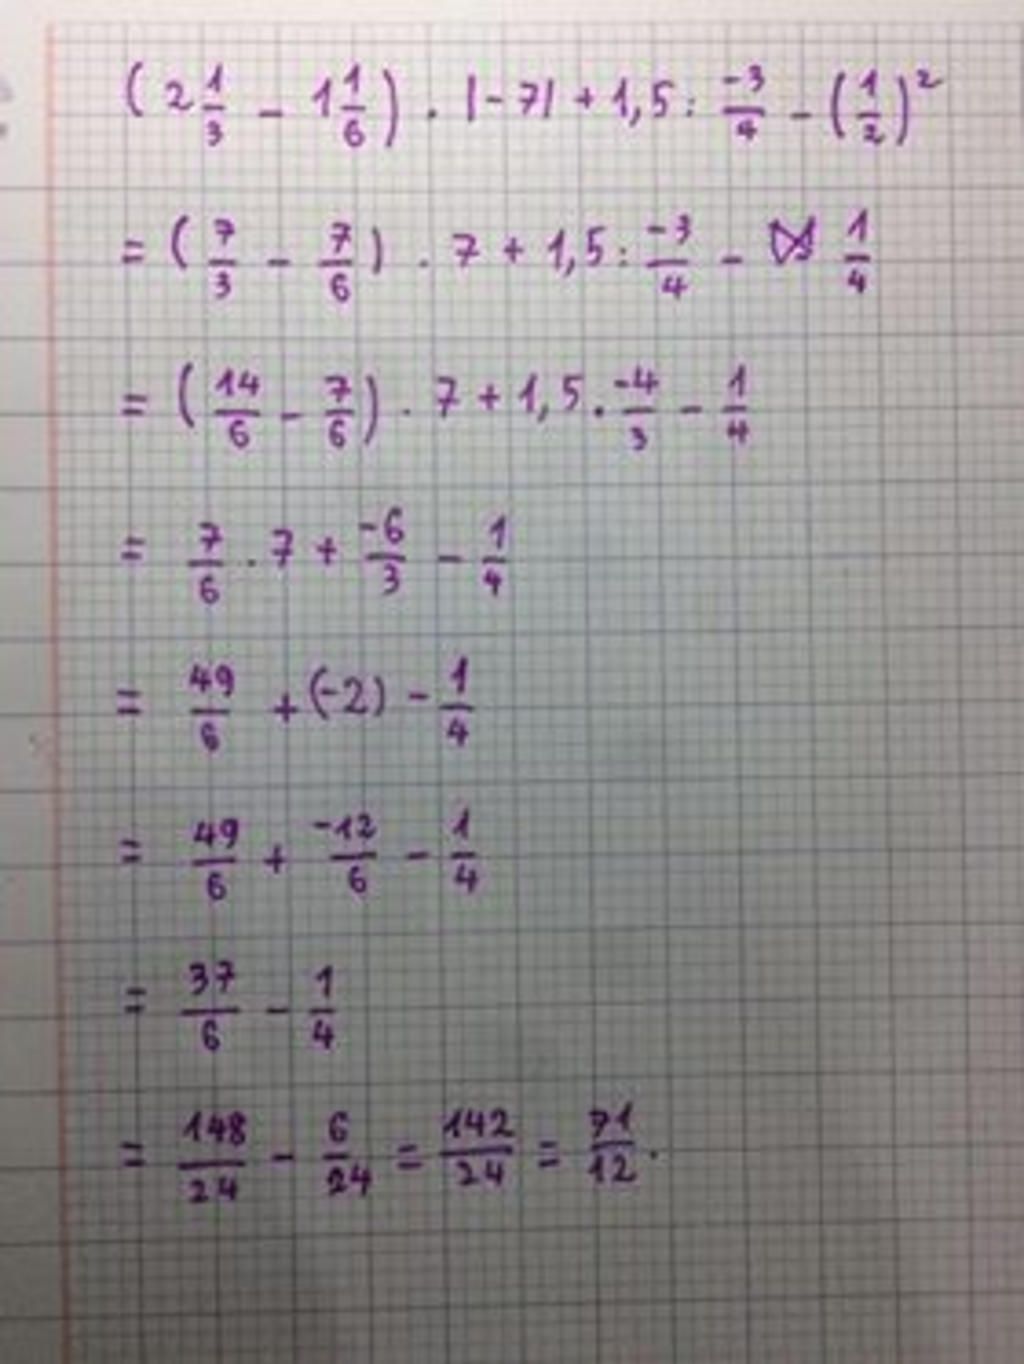 (2 1/3 - 1 1/6) . |-7| + 1,5 : -3/4 - (1/2)²
= (7/3 - 7/6) . 7 + 1,5 : -3/4 - 1/4
= (14/6 - 7/6) . 7 + 1,5 . -4/3 - 1/4
= 7/6 . 7 + -6/3 - 1/4
= 49/6 + (-2) - 1/4
= 49/6 + -12/6 - 1/4
= 37/6 - 1/4
= 148/24 - 6/24 = 142/24 = 71/12 .